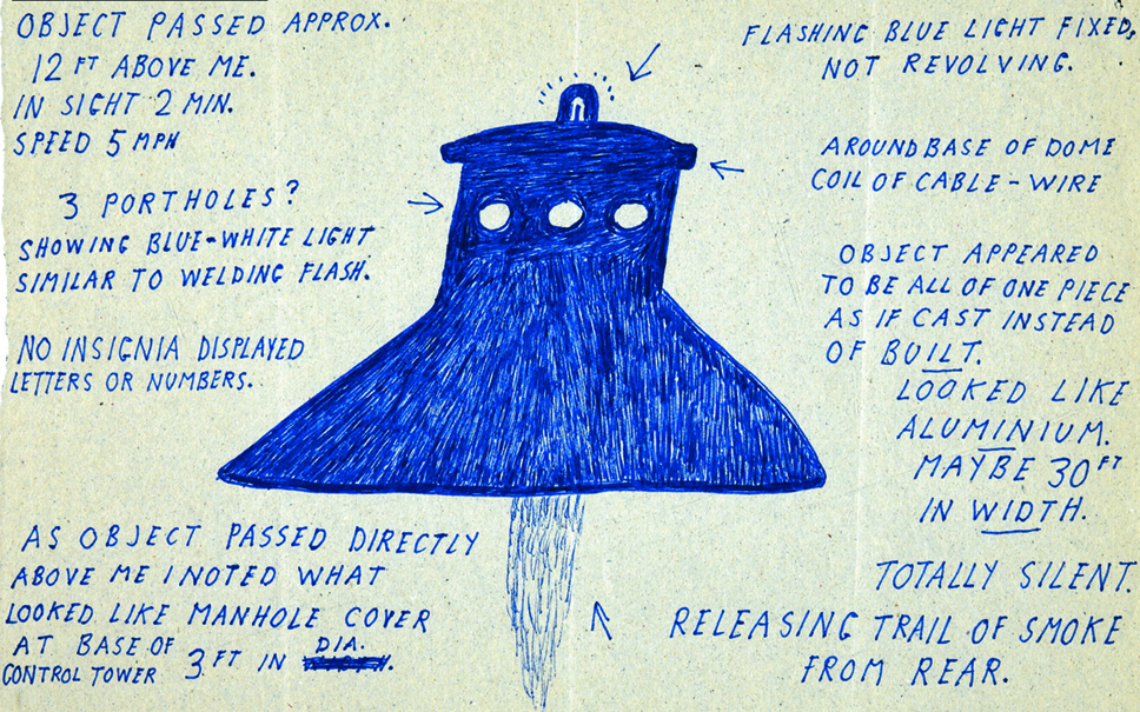 OBJECT PASSED APPROX.
12 FT ABOVE ME.
IN SIGHT 2 MIN.
SPEED 5 MPH
3 PORTHOLES?
SHOWING BLUE-WHITE LIGHT
SIMILAR TO WELDING FLASH.
NO INSIGNIA DISPLAYED
LETTERS OR NUMBERS.
AS OBJECT PASSED DIRECTLY
ABOVE ME I NOTED WHAT
LOOKED LIKE MANHOLE COVER
AT BASE OF
CONTROL TOWER 3 FT IN DIA.
FLASHING BLUE LIGHT FIXED,
NOT REVOLVING.
AROUND BASE OF DOME
COIL OF CABLE-WIRE
OBJECT APPEARED
TO BE ALL OF ONE PIECE
AS IF CAST INSTEAD
OF BUILT.
LOOKED LIKE
ALUMINIUM.
MAYBE 30 FT
IN WIDTH.
TOTALLY SILENT.
RELEASING TRAIL OF SMOKE
FROM REAR.